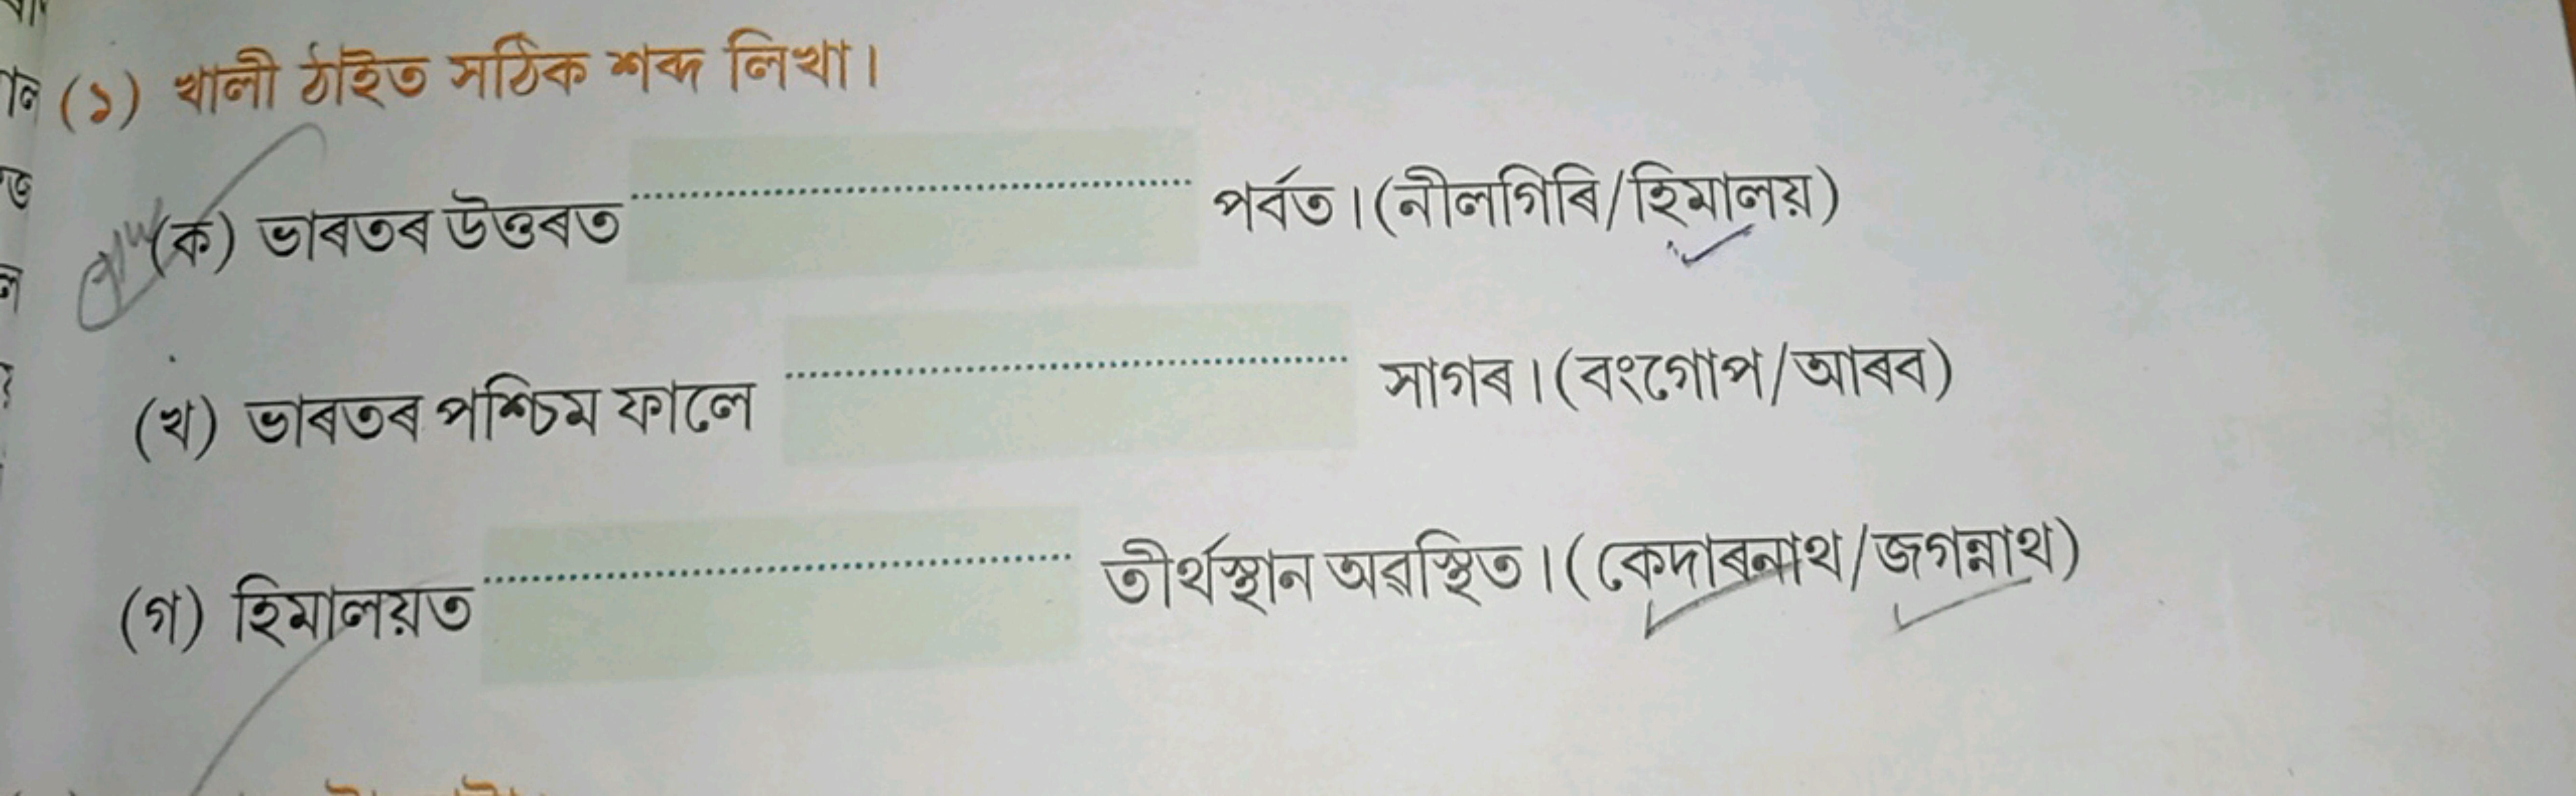 (১) খালী ঠাইত সঠিক শব্দ লিখা।
(ক) ভাৰতৰ উত্তৰত .................... পৰ্বত। (নীলগিৰি/হিমালয়)
(খ) ভাৰতৰ পশ্চিম ফালে .................... সাগৰ। (বংগোপ/আৰব)
(গ) হিমালয়ত .................... তীৰ্থস্থান অৱস্থিত। (কেদাৰনাথ/জগন্নাথ)